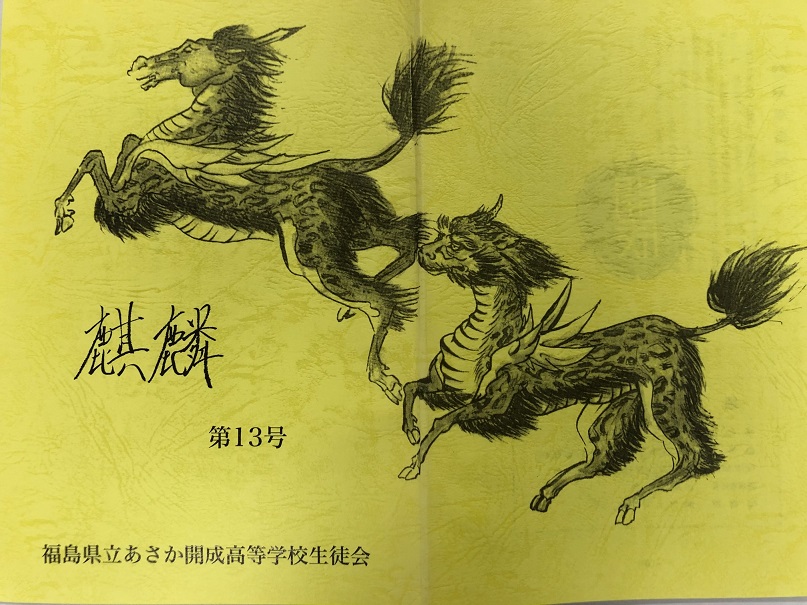 麒麟
第13号
福島県立あさか開成高等学校生徒会